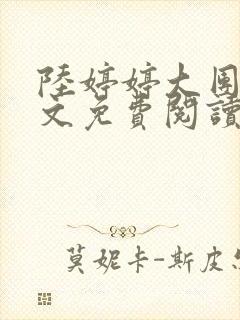 陸婷婷大團
文免費閱讀
莫妮卡-斯皮